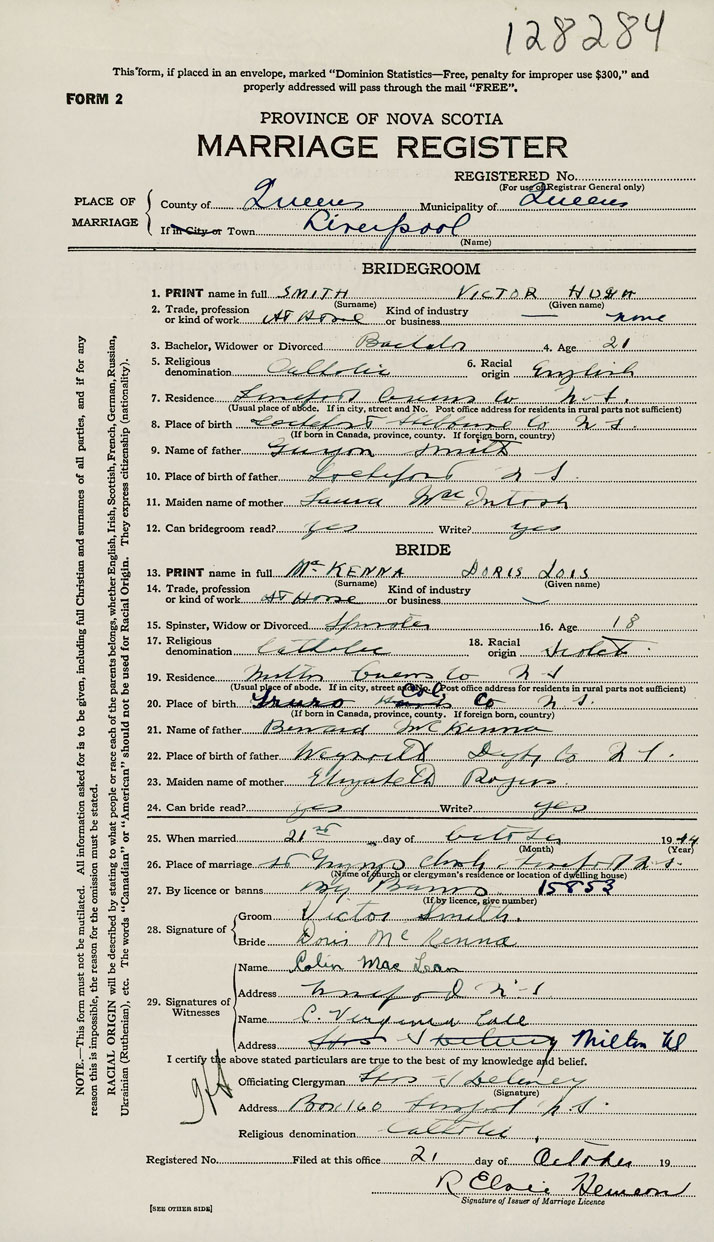 128284
This form, if placed in an envelope, marked "Dominion Statistics—Free, penalty for improper use $300," and
properly addressed will pass through the mail "FREE".
FORM 2
PROVINCE OF NOVA SCOTIA
MARRIAGE REGISTER
REGISTERED No.
(For use of Registrar General only)
PLACE OF MARRIAGE
County of Queens Municipality of Queens
If in City or Town Liverpool
(Name)
BRIDEGROOM
1. PRINT name in full SMITH VICTOR HUGH
(Surname) (Given name)
2. Trade, profession or kind of work At Home Kind of industry or business — none
3. Bachelor, Widower or Divorced Bachelor 4. Age 21
5. Religious denomination Catholic 6. Racial origin English
7. Residence Liverpool Queens Co N.S.
(Usual place of abode. If in city, street and No. Post office address for residents in rural parts not sufficient)
8. Place of birth Lockeport Shelburne Co N S.
(If born in Canada, province, county. If foreign born, country)
9. Name of father Smith
10. Place of birth of father Lockeport N S.
11. Maiden name of mother Laura MacIntosh
12. Can bridegroom read? yes Write? yes
BRIDE
13. PRINT name in full McKENNA DORIS LOIS
(Surname) (Given name)
14. Trade, profession or kind of work At Home Kind of industry or business
15. Spinster, Widow or Divorced Spinster 16. Age 18
17. Religious denomination Catholic 18. Racial origin
19. Residence Milton Queens Co N S
(Usual place of abode. If in city, street and No. Post office address for residents in rural parts not sufficient)
20. Place of birth Truro Col. Co N S.
(If born in Canada, province, county. If foreign born, country)
21. Name of father Bernard McKenna
22. Place of birth of father Weymouth Digby Co N S.
23. Maiden name of mother Elizabeth Rogers
24. Can bride read? yes Write? yes
25. When married 21st day of October 1944
(Month) (Year)
26. Place of marriage St Gregory's Church Liverpool N.S.
(Name of church or clergyman's residence or location of dwelling house)
27. By licence or banns By Banns 15853
(If by licence, give number)
28. Signature of
Groom Victor Smith.
Bride Doris McKenna
29. Signatures of Witnesses
Name Colin MacLean
Address Liverpool N.S
Name C. Virginia
Address Milton NS
I certify the above stated particulars are true to the best of my knowledge and belief.
Officiating Clergyman Thos J Delaney
(Signature)
Address Box 160 Liverpool N.S.
Religious denomination Catholic
Registered No. Filed at this office 21 day of October 19
R Elsie Hemeon
Signature of Issuer of Marriage Licence
[SEE OTHER SIDE]
NOTE.—This form must not be mutilated. All information asked for is to be given, including full Christian and surnames of all parties, and if for any
reason this is impossible, the reason for the omission must be stated.
RACIAL ORIGIN will be described by stating to what people or race each of the parents belongs, whether English, Irish, Scottish, French, German, Russian,
Ukrainian (Ruthenian), etc. The words "Canadian" or "American" should not be used for Racial Origin. They express citizenship (nationality).